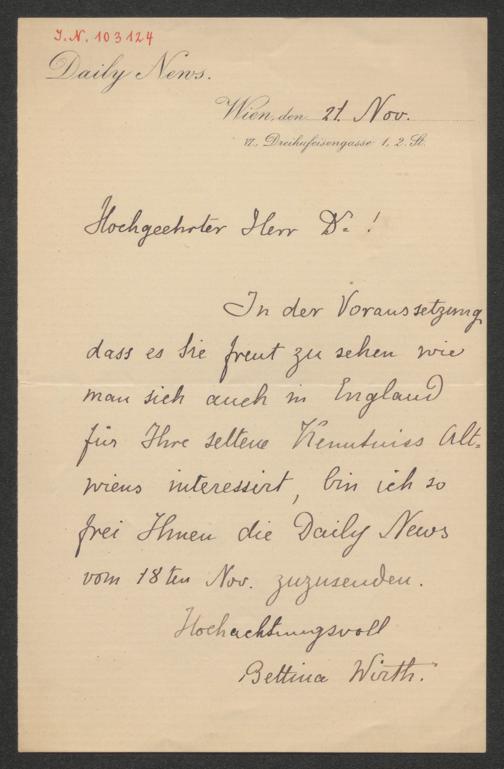 I.N. 103124
Daily News.
Wien, den 21. Nov.
VI., Dreihufeisengasse 1, 2. St.
Hochgeehrter Herr Dr !
In der Voraussetzung
dass es Sie freut zu sehen wie
man sich auch in England
für Ihre seltene Kenntniss Alt-
wiens interessirt, bin ich so
frei Ihnen die Daily News
vom 18ten Nov. zuzusenden.
Hochachtungsvoll
Bettina Wirth.